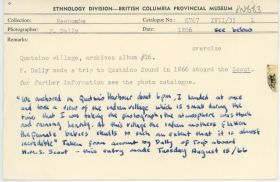 ETHNOLOGY DIVISION—BRITISH COLUMBIA PROVINCIAL MUSEUM
Subject: Catalogue No.: 8767
Photographer: F. Dally Date: 1866 see below
Remarks: oversize
Quatsino village, archives album #16.
F. Dally made a trip to Quatsino Sound in 1866 aboard the Scout.
for further information see the photo catalogue.
"We anchored in Quatsino Harbour about 6pm, I landed at once
and took a view of the indian village which is small during the
time that I was taking the photograph the atmosphere was thick
and raining heavily. At this village the indian mothers flatten
the female babies skulls to such an extent that it is almost
incredible" Taken from account by Dally of Trip aboard
H.M.S. Scout - this entry made Tuesday August 15/66